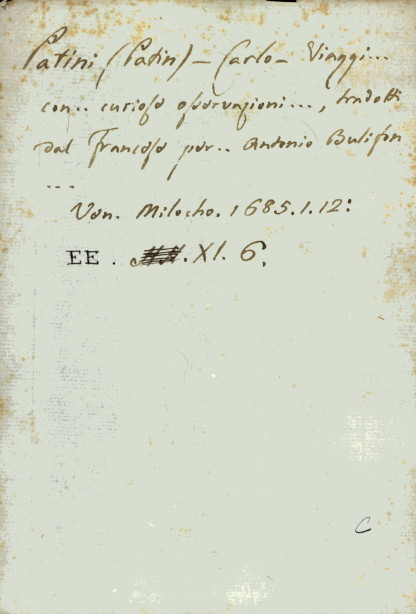 Patini (Patin) – Carlo – Viaggi...
con.. curiose osservazioni..., tradotti
dal Francese per.. Antonio Bulifon
...
Ven. Milocho. 1685. 1. 12:
EE . . XI. 6.
C